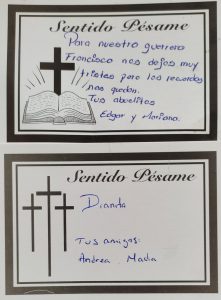 Sentido Pésame
Para nuestro guerrero
Francisco nos dejas muy
tristes pero los recuerdos
nos quedan.
Tus abuelitos
Edgar y Mariana.
Sentido Pésame
Dianita
Tus amigos:
Andrea. Madia